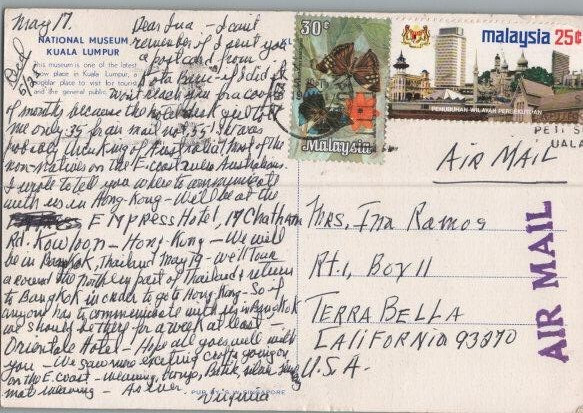 May 17.
Dear Ina - I can't
remember if I sent you
a postcard from
Kota if I did it
won't reach you for a couple
of months because the hotel desk girl told
me only 35 for air mail not 55. She was
probably thinking of Australia! Most of the
non-natives on the E. coast were Australians.
I wrote to tell you where to communicate
with us in Hong-Kong - We'll be at the
EMPRESS HOTEL, 17 Chatham
Rd. Kowloon - Hong-Kong - We will
be in Bangkok, Thailand May 19 - we'll tour
around the northern part of Thailand & return
to Bangkok in order to go to Hong Kong - So if
anyone has to communicate with us in Bangkok
we should be there for a week at least -
Orientale Hotel - Hope all goes well with
you - We saw more exciting crafts going on
on the E. coast - weaving, Batik, silver
mat weaving - As ever
Virginia
Recd
5/23
NATIONAL MUSEUM
KUALA LUMPUR
This museum is one of the latest
show place in Kuala Lumpur, a
popular place to visit for
and the general public
KU
30¢
Malaysia
malaysia 25¢
PENUBUHAN WILAYAH PERSEKUTUAN
UALA
AIR MAIL
Mrs. Ina Ramos
Rt. 1, Box 11
TERRA BELLA
CALIFORNIA 93270
U.S.A.
AIR MAIL
SINGAPORE